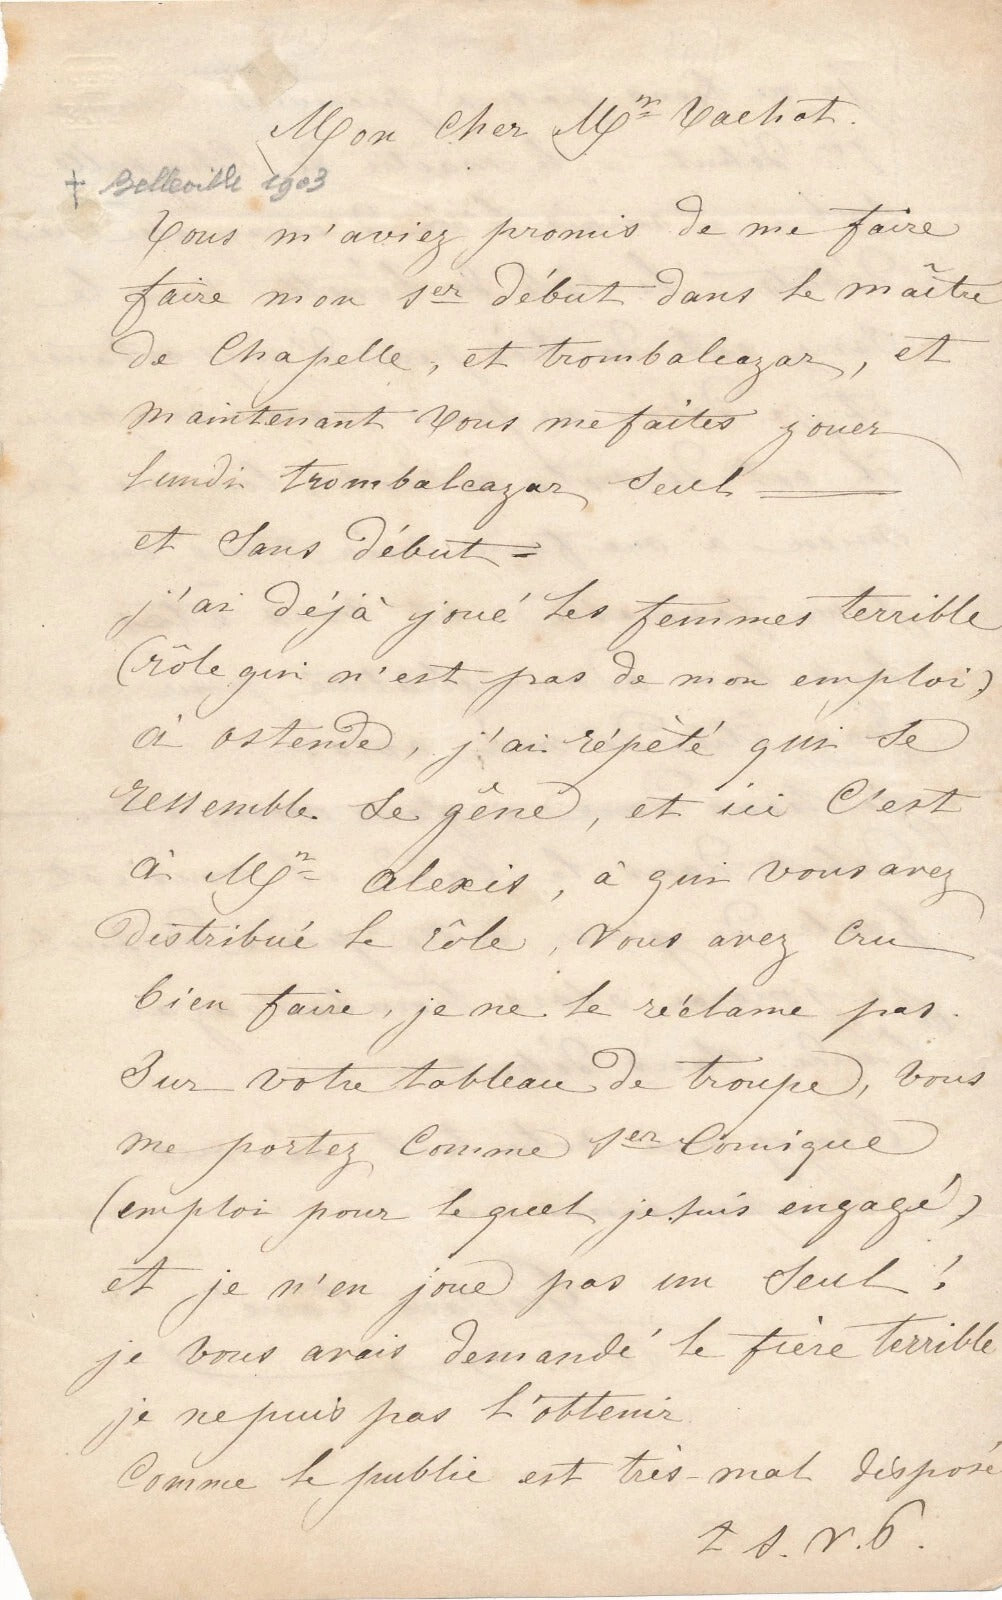 Mon Cher Mr Vachot.
+ Belleville 1903
Vous m'aviez promis de me faire
faire mon 1er début dans le maître
de Chapelle, et trombalcazar, et
maintenant vous me faites jouer
lundi trombalcazar seul
et sans début =
j'ai déjà joué les femmes terrible
(rôle qui n'est pas de mon emploi)
à ostende, j'ai répèté qui se
ressemble se gêne, et ici c'est
à Mr alexis, à qui vous avez
distribué le rôle, vous avez cru
bien faire, je ne le réclame pas.
Sur votre tableau de troupe, vous
me portez Comme 1er Comique
(emploi pour lequel je suis engagé)
et je n'en joue pas un seul!
je vous avais demandé le frère terrible
je ne puis pas l'obtenir
Comme le public est très-mal disposé
t. s. v. p.